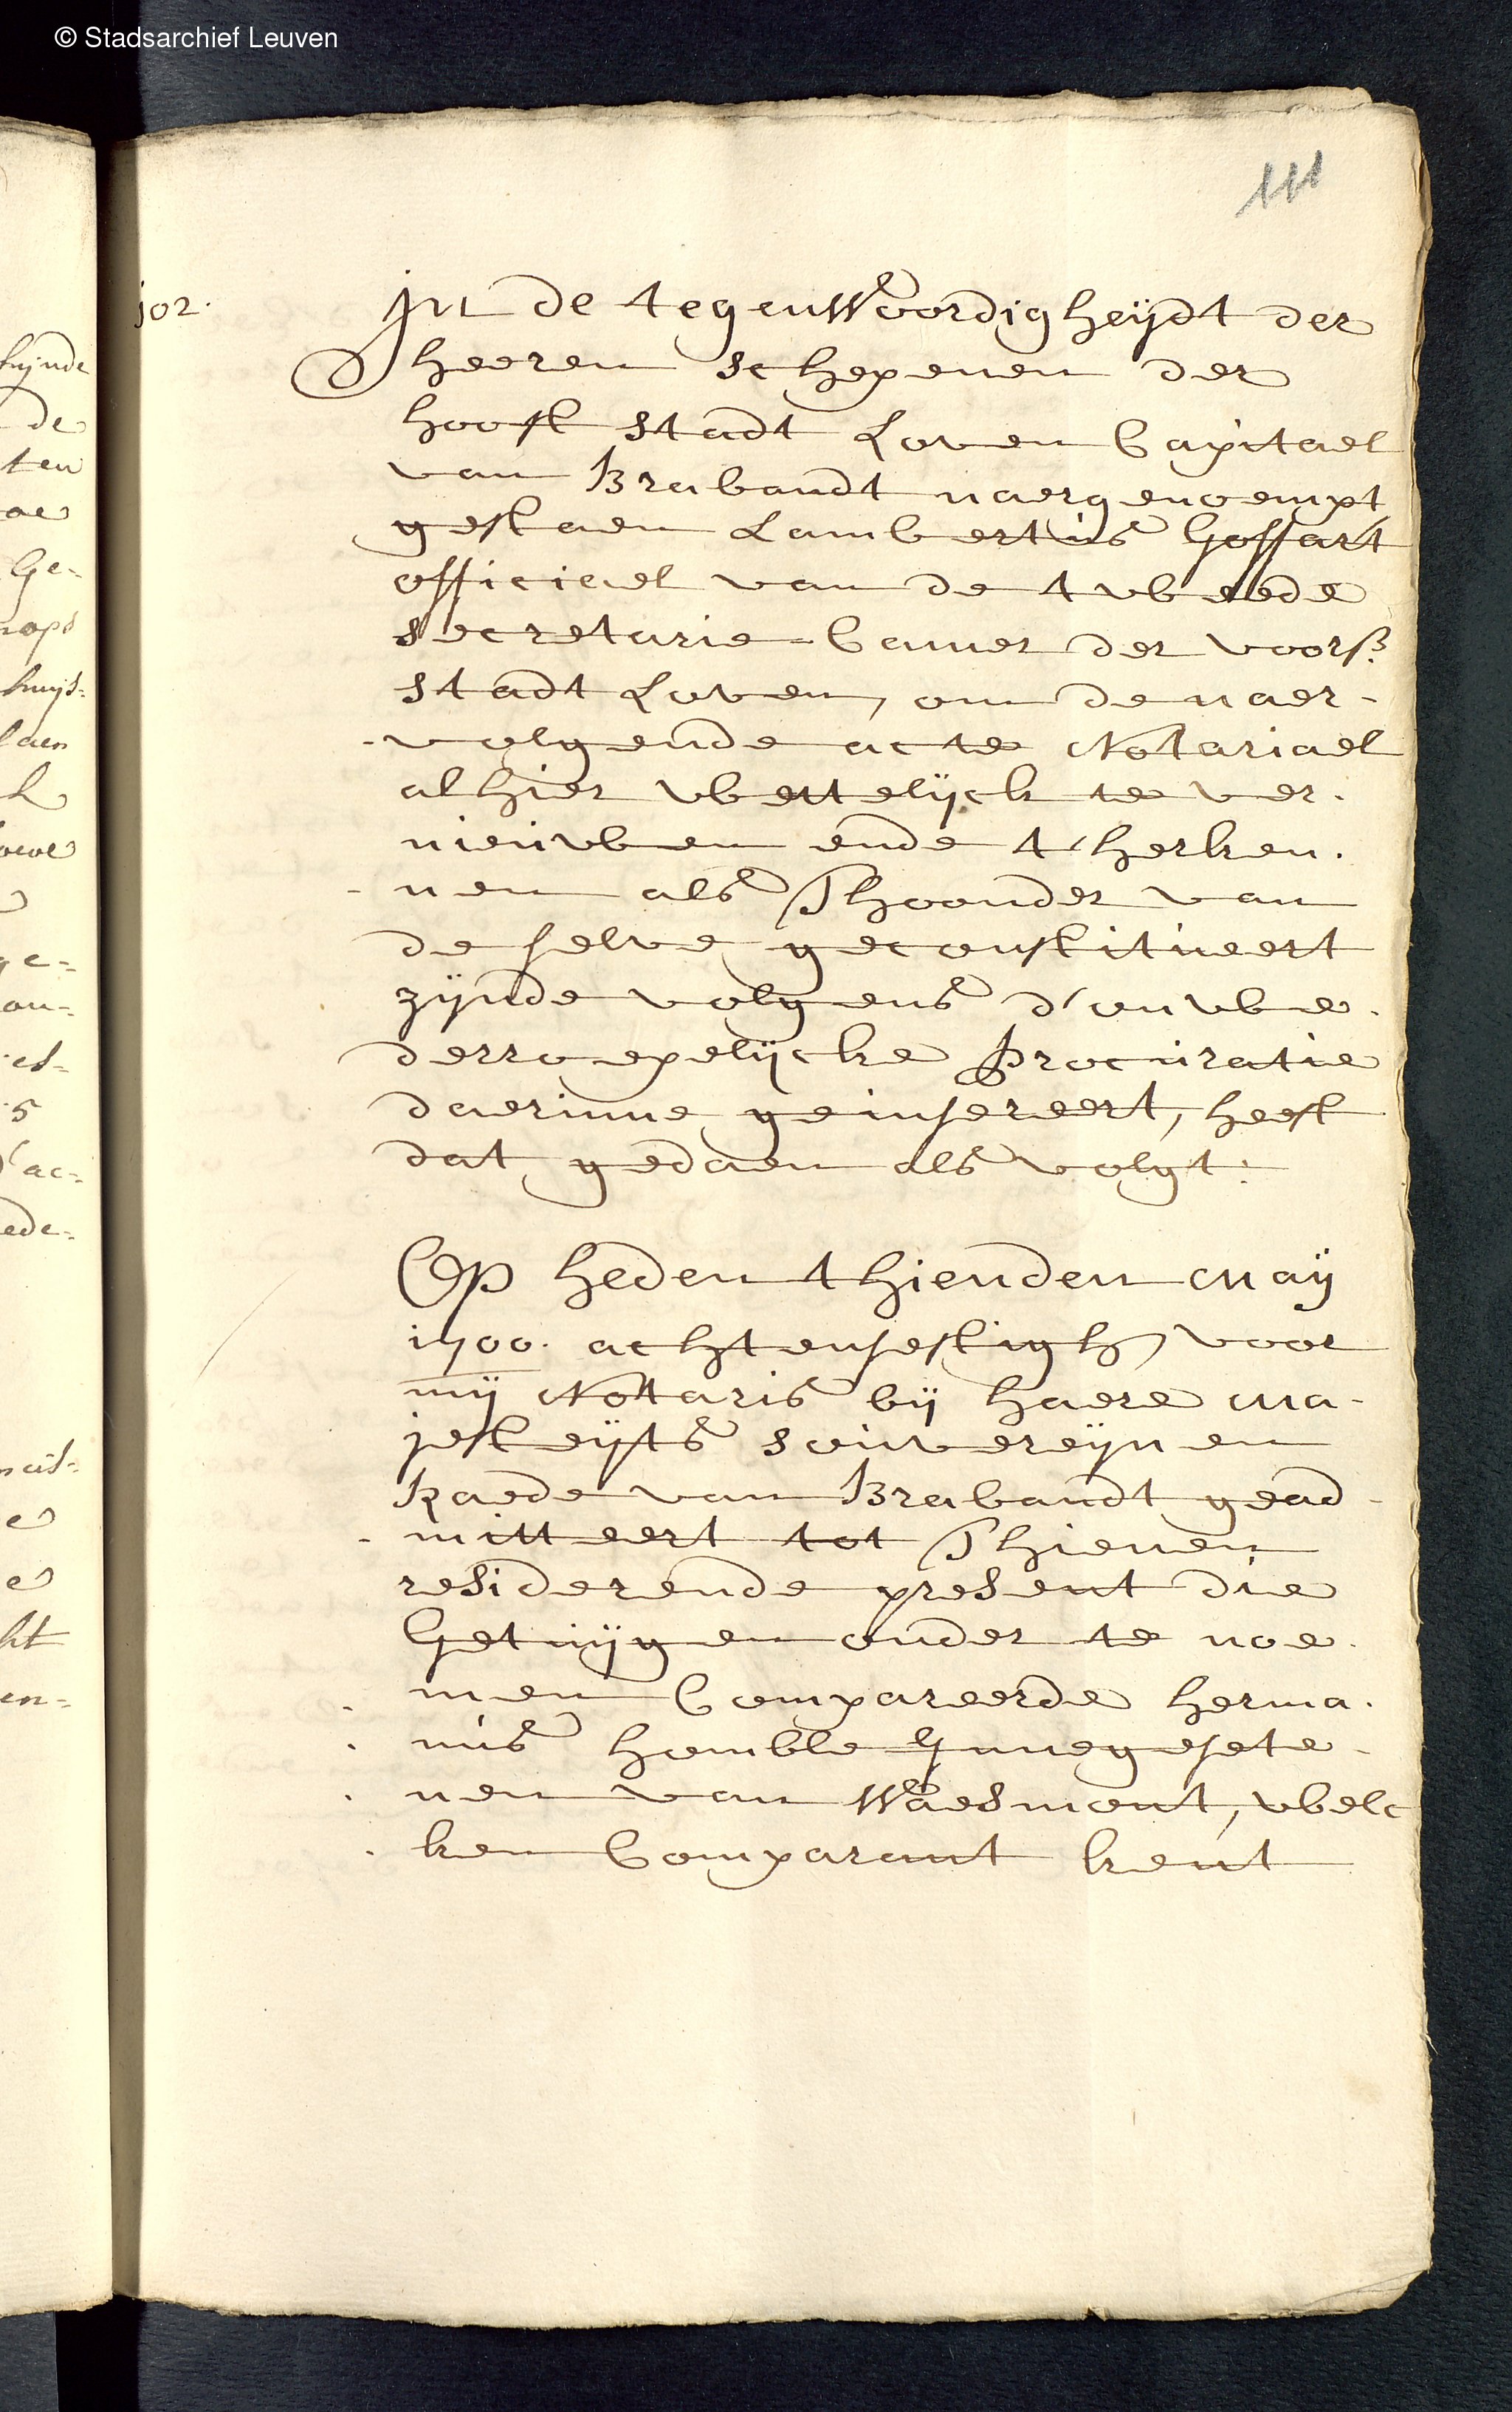 © Stadsarchief Leuven
111
j02.
In de tegenwoordigheijdt der
heeren schepenen der
hooft stadt Loven Capitael
van Brabandt naergenoempt
gestaen Lambertus Goffart
officiael van de tweede
secretarie-Camer der voors.
stadt Loven, om de naer-
volgende acte Notariael
alhier wettelijck te ver-
nieuwen ende t'herken-
nen als Thoonder van
de selve geconstitueert
zijnde volgens d'onwe-
derroepelijcke Procuratie
daerinne geinsereert, heeft
dat gedaen als volgt:
Op heden thienden maij
1700. achtensestigh, voor
mij Notaris bij haere Ma-
jesteijts souvereijnen
Raede van Brabandt gead-
mitteert tot Thienen
residerende present die
Getuijgen onder te noe-
men Compareerde herma-
nus homble Innegesete-
nen van Waesmont, welc
ken Comparant kent